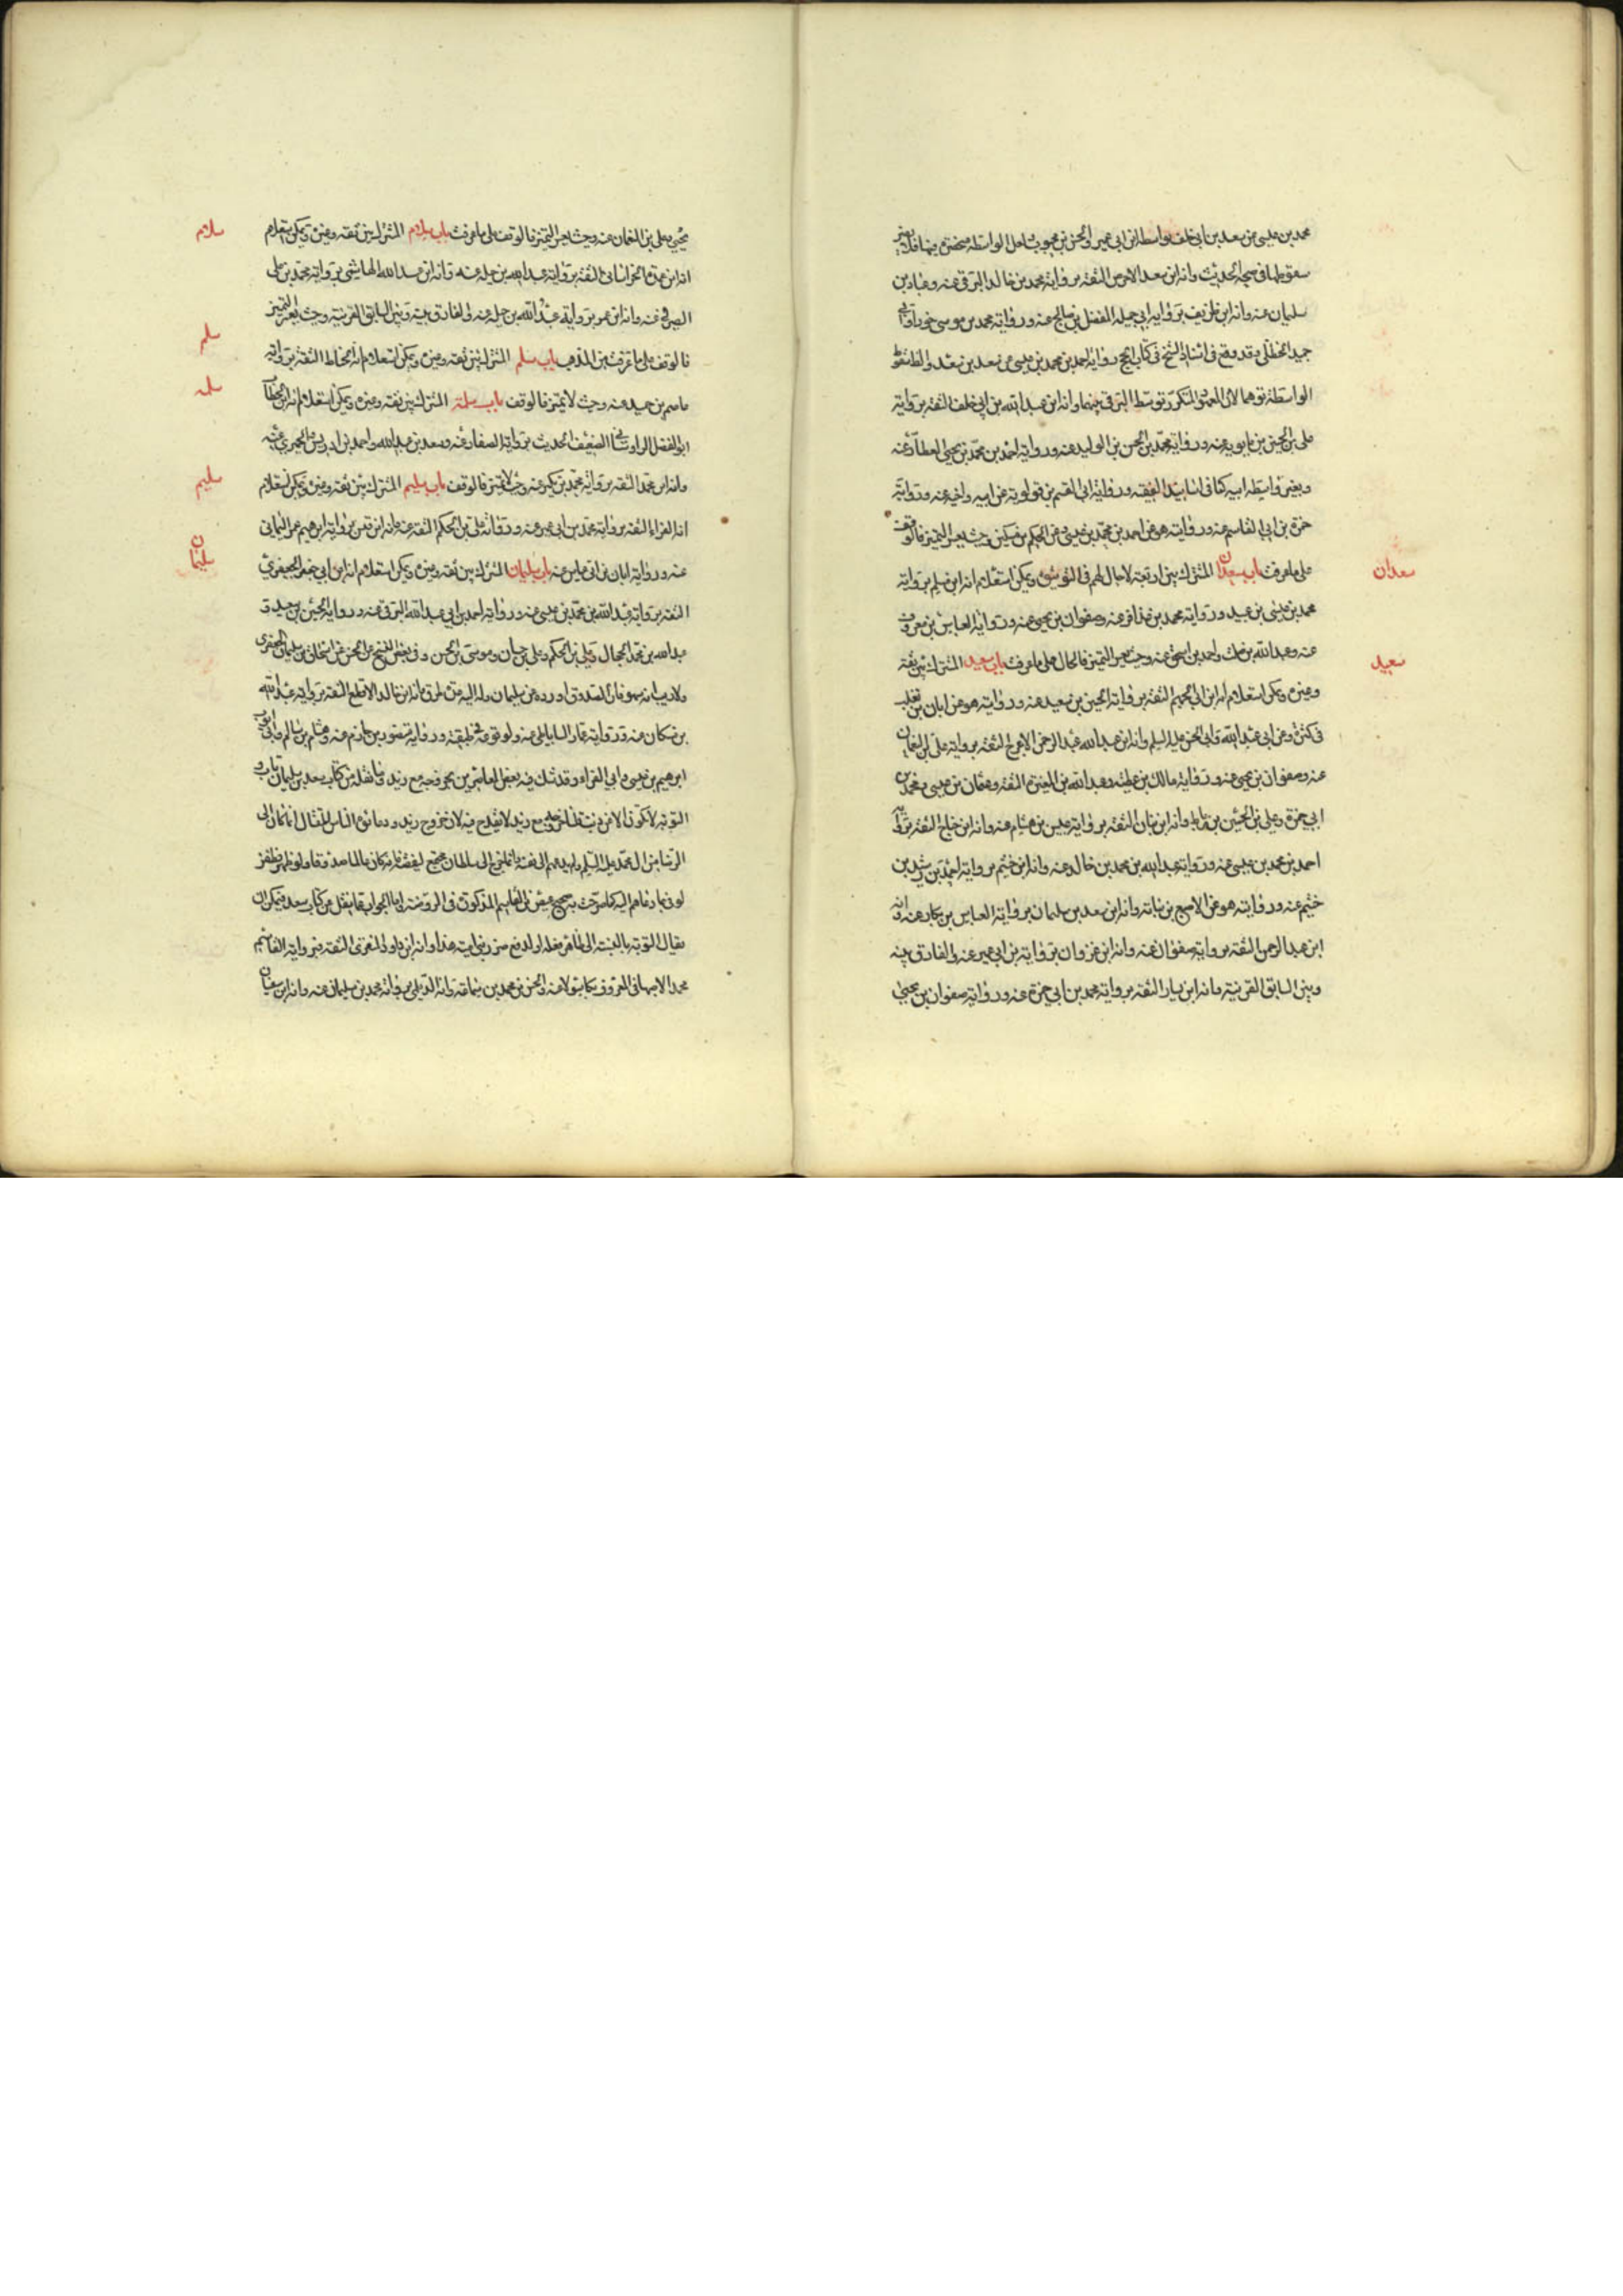 محمد بن عيسى عن سعد بن ابي خلف بواسطة ابن ابي عمير والحسن بن محبوب
سقوطها في صحة الحديث وانه ابن سعد الاحوص الثقة برواية محمد بن خالد البرقي عنه وعباد بن
سليمان عنه وانه ابن طريف برواية ابي جميلة المفضل بن صالح عنه ورواية محمد بن موسى
وقد وقع في اسناد الشيخ في كتاب الحج رواية احمد بن محمد بن عيسى عن سعد بن سعد والظ سقوط
الواسطة توهما لان المعهود المتكرر توسط البرقي بينهما وانه ابن عبد الله بن ابي خلف الثقة برواية
علي بن الحسين بن بابويه عنه ورواية محمد بن الحسن بن الوليد عنه ورواية احمد بن محمد بن يحيى العطار عنه
وبغير واسطة ابيه كما في اسانيد الفقيه ورواية ابي القسم بن قولويه عن ابيه واخيه عنه ورواية
حمزة بن ابي القاسم عنه وروايته هو عن احمد بن محمد بن عيسى وعن الحكم بن مسكين وحيث يعسر التميز فالوقف
على ما عرفت باب سعدان المشترك بين اربعة لا حال لهم في التوثيق ويمكن استعلام انه ابن مسلم برواية
سعدان
محمد بن عيسى بن عبيد ورواية محمد بن عذافر عنه وصفوان بن يحيى عنه ورواية العباس بن معروف
عنه وعبد الله بن واحمد بن اسحق عنه وحيث يعسر التميز فالحال على ما عرفت باب سعيد المشترك بين ثقة
سعيد
وغيره ويمكن استعلام انه ابن ابي الجهم الثقة برواية الحسين بن سعيد عنه وروايته هو عن ابان بن تغلب
في كثرة وعن ابي عبد الله وابي الحسن عليه السلم وانه ابن عبد الله عبد الرحمن الاعرج الثقة برواية علي بن النعمان
عنه وصفوان بن يحيى عنه ورواية مالك بن عطية وعبد الله بن المغيرة الثقة وعثمان بن عيسى ومحمد بن
ابي حمزة وعلي بن الحسين بن رباط وانه ابن بيان الثقة برواية عبيس بن هشام عنه وانه ابن جناح الثقة برواية
احمد بن محمد بن عيسى عنه ورواية عبد الله بن محمد بن خالد عنه وانه ابن خثيم برواية احمد بن رشيد بن
خثيم عنه وروايته هو عن الاصبغ بن نباتة وانه ابن سعد بن سليمان برواية العباس بن بكار عنه وانه
ابن عبد الرحمن الثقة برواية صفوان عنه وانه ابن غزوان برواية بن ابي عمير عنه والفارق بينه
وبين السابق القرينة وانه ابن يسار الثقة برواية محمد بن ابي حمزة عنه ورواية صفوان بن يحيى
يحيى وعلي بن النعمان عنه وحيث يعسر التميز فالوقف على ما عرفت باب سلام المشترك بين ثقة وغيره ويمكن استعلام
سلام
انه ابن عمرة الخراساني الثقة برواية عبد الله بن جبلة عنه وانه ابن عبد الله الهاشمي برواية محمد بن علي
الصيرفي عنه وانه ابن عمرو برواية عبد الله بن جبلة عنه والفارق بينه وبين السابق القرينة وحيث يعسر التميز
فالوقف على ما عرفت من المذهب باب سلم المشترك بين ثقة وغيره ويمكن استعلام انه الحناط الثقة برواية
سلم
عاصم بن حميد عنه وحيث لا تميز فالوقف باب سلمة المشترك بين ثقة وغيره ويمكن استعلام انه ابن الخطاب
سلمه
ابو الفضل الراوستاني الضعيف الحديث برواية الصفار عنه وسعد بن عبد الله واحمد بن ادريس والحميري عنه
وانه ابن محمد الثقة برواية محمد بن بكر عنه وحيث لا تميز فالوقف باب سليم المشترك بين ثقة وغيره ويمكن استعلام
سليم
انه الفراء الثقة برواية محمد بن ابي عمير عنه ورواية علي بن الحكم الثقة عنه وانه ابن قيس برواية ابرهيم عمر اليماني
عنه ورواية ابان بن ابي عياش عنه باب سليمان المشترك بين ثقة وغيره ويمكن استعلام انه ابن ابي جعفر الجعفري
سليمان
الثقة برواية عبد الله بن محمد بن عيسى عنه ورواية احمد بن ابي عبد الله البرقي عنه ورواية الحسين بن سعيد و
عبد الله بن محمد الحجال وعلي بن الحكم وعلي بن حسان وموسى بن الحسن وفي بعض النسخ عن الحسن عن اسحاق بن سليمان الجعفري
ولا ريب انه سهو فان الصدوق اورده عن سليمان وانه ابن خالد الاقطع الثقة برواية عبد الله
بن مسكان عنه ورواية عمار الساباطي عنه ولوقوعه في طبقته ورواية منصور بن حازم عنه وهشام بن سالم وابي ايوب
ابرهيم بن عيسى وابي الفراء وقد شك فيه بعض المعاصرين بخروجه مع زيد وما نقله من كتاب سعد بن سليمان تاب و
التوبة لا تكون الا عن ذنب مع زيد لا يقدح فيه لان خروج زيد ودعائه الناس للقتال انما كان الى
الرضا من ال محمد عليه السلم ولم يدعهم الى نفسه وانما خرج الى سلطان مجتمع لينقضه ولو ظهر وظفر
لوفى بما دعاهم اليه كما صرحت به صحيحة عيص بن القاسم المذكورة في الروضة واما الجواب عما نقل من كتاب سعد فيمكن ان
يقال التوبة بالنسبة الى ظاهر فعله
محمد الاصبهاني المعروف بكاسولا عنه والحسن بن محمد بن سماعة وانه الديلمي برواية محمد بن سليمان عنه وانه ابن سفيان